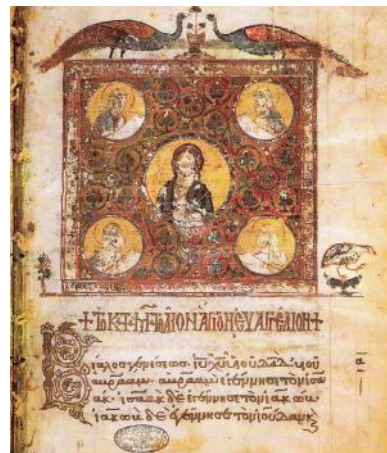 +ΤΟ Κ,Τ, ΜΑΤΘΑΙΟΝ ΑΓΙΟΝ ΕΥΑΓΓΕΛΙΟΝ+
Βίβλος γενέσεως ἰυ χυ υἱοῦ δαδ υἱοῦ
αβρααμ· αβρααμ ἐγέννησε τὸν ἰσα
ακ· ἰσαακ δὲ ἐγέννησε τὸν ἰακωβ
ἰακωβ δὲ ἐγέννησε τὸν ἰούδαν